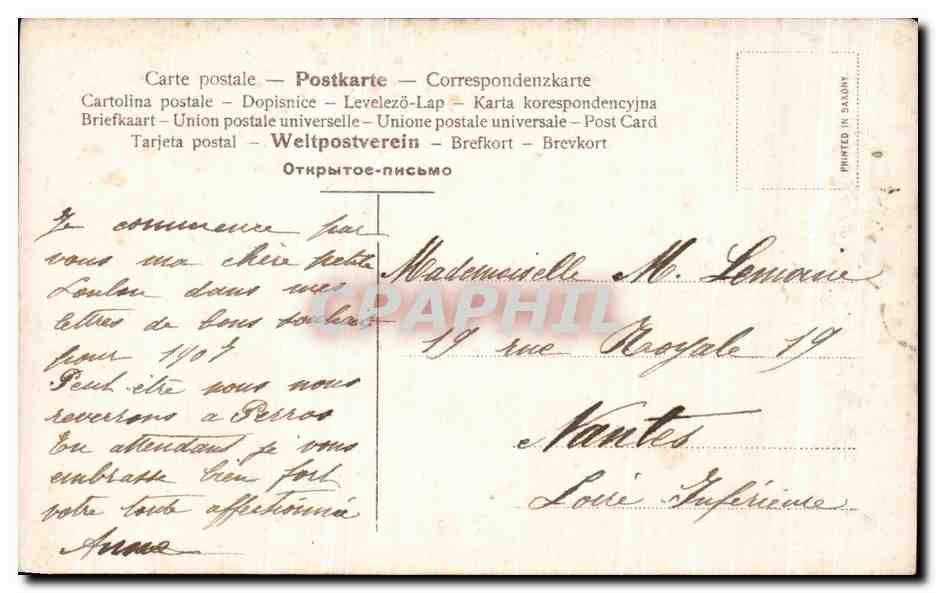 Carte postale — Postkarte — Correspondenzkarte
Cartolina postale – Dopisnice – Levelező-Lap – Karta korespondencyjna
Briefkaart – Union postale universelle – Unione postale universale – Post Card
Tarjeta postal – Weltpostverein – Brefkort – Brevkort
Открытое-письмо
PRINTED IN SAXONY.
Je commence par
vous ma chère petite
Loulou dans mes
lettres de bons souhaits
pour 1907
Peut être nous nous
reverrons a Perros
En attendant je vous
embrasse bien fort
votre toute affectionnée
Anne
Mademoiselle M. Lemoine
19 rue Royale 19
Nantes
Loire Inférieure
CPAPHIL